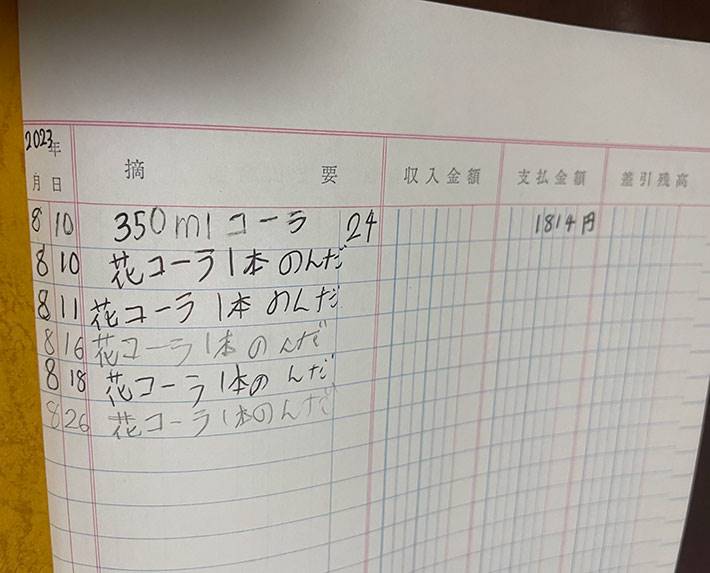 2023年
月 日 摘 要 収入金額 支払金額 差引残高
8 10 350ml コーラ 24 1814円
8 10 花コーラ1本 のんだ
8 11 花コーラ 1本 のんだ
8 16 花コーラ 1本 の んだ
8 18 花コーラ 1本の んだ
8 26 花コーラ 1本のんだ